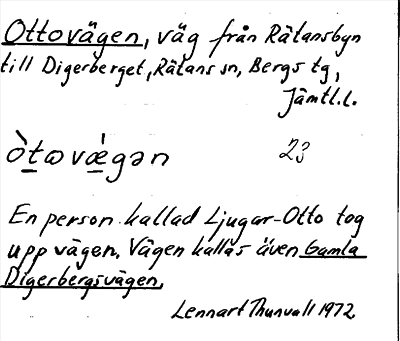 Ottovägen, väg från Rätansbyn
till Digerberget, Rätans sn, Bergs tg,
Jämtl.l.
òt̲ωvǽ̲gən 23
En person kallad Ljugar-Otto tog
upp vägen. Vägen kallas även Gamla
Digerbergsvägen.
Lennart Thunvall 1972